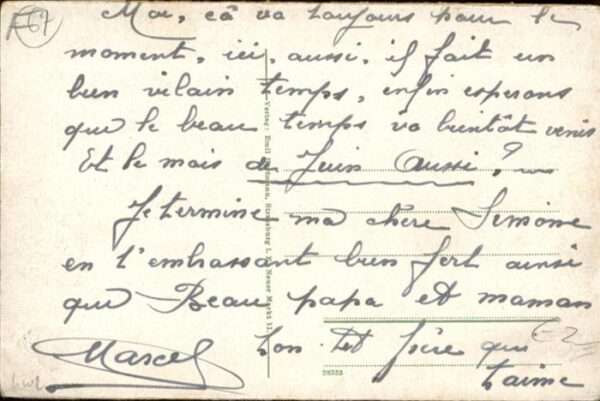 F67
Moi, câ va toujours pour le
moment, ici, aussi, il fait un
bien vilain temps, enfin esperons
que le beau temps va bientôt venir
Et le mois de Juin aussi ?
Je termine ma chère Simone
en t'embrassant bien fort ainsi
que Beau papa et maman
Ton frère qui
t'aime
Marcel
Verlag: Emil Strassburg i. Neuer Markt 11